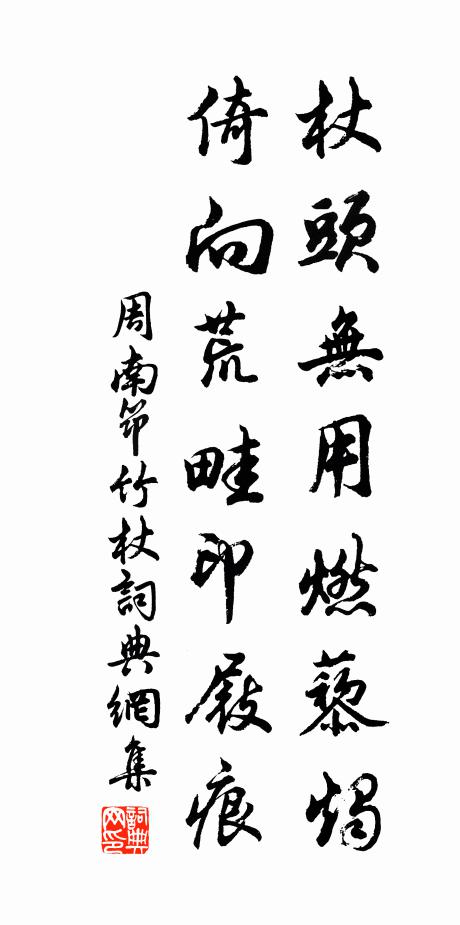 杖頭無用燃藜燭
倚向荒畦印屐痕
周南筇竹杖詞典網集
詞典网印